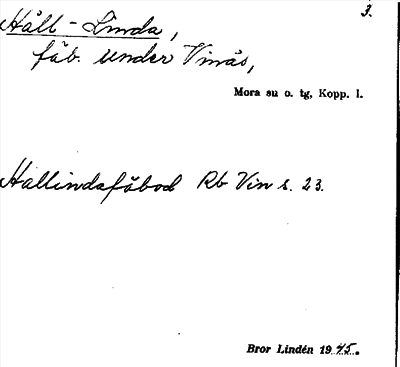 3.
Håll-Linda,
fäb. under Vinäs,
Mora su o. tg, Kopp. l.
Hallindafäbod Rb Vin s. 23.
Bror Lindén 1945.